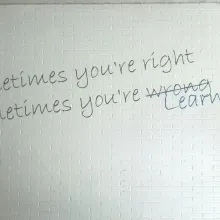 etimes you're right
etimes you're wrong
Learn